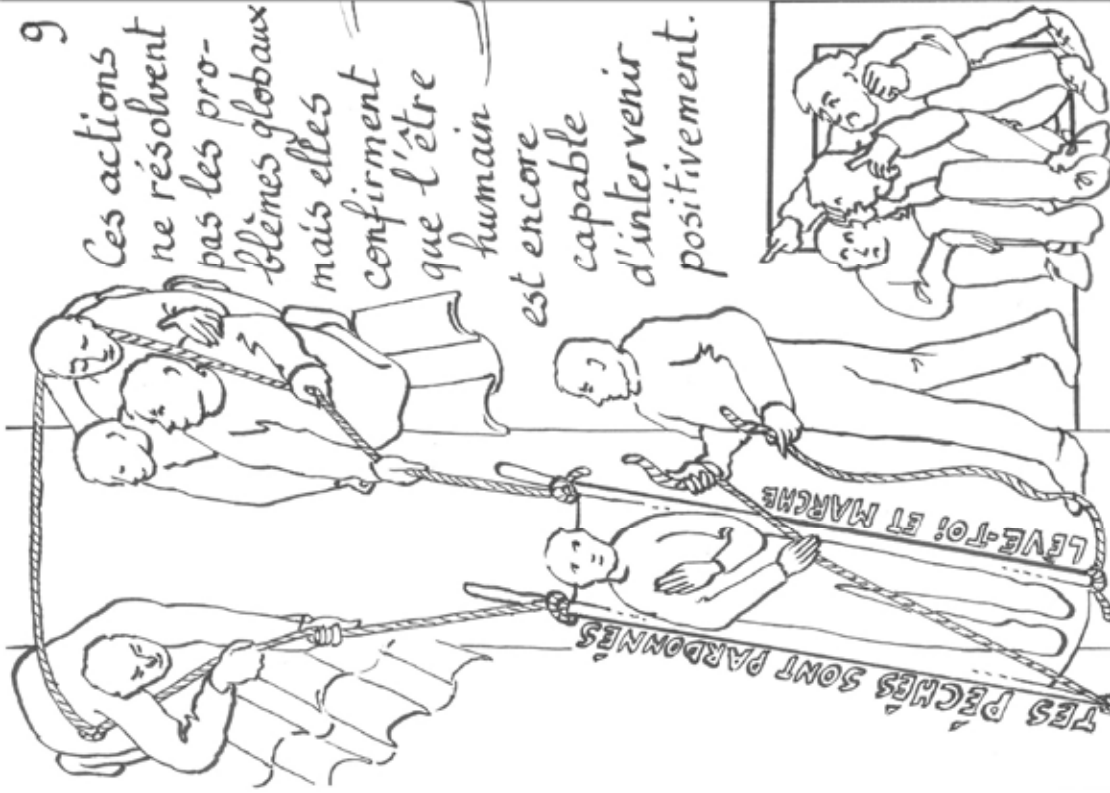 9
Ces actions
ne résolvent
pas les pro-
blèmes globaux
mais elles
confirment
que l'être
humain
est encore
capable
d'intervenir
positivement.
LEVE-TOi ET MARCHE
TES PÉCHÉS SONT PARDONNÉS